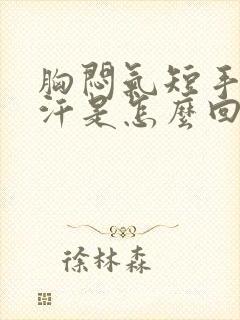 胸悶氣短手
汗是怎麼回
徐林森